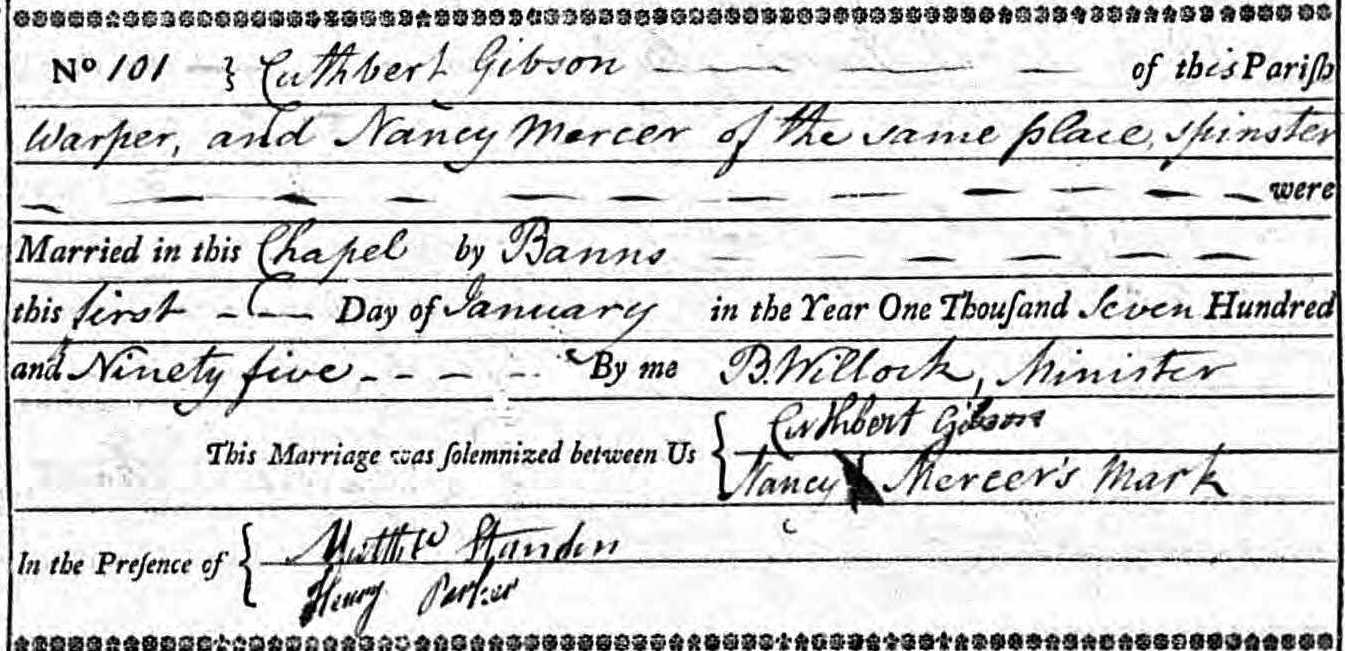 No 101 } Cuthbert Gibson — — — — of this Pariſh
Warper, and Nancy Mercer of the same place, spinster
— — — — — — — — — — — were
Married in this Chapel by Banns — — — — — —
this first - - — Day of January in the Year One Thouſand Seven Hundred
and Ninety five - - - - By me B. Willock, Minister
Cuthbert Gibson
This Marriage was ſolemnized between Us {
Nancy Mercer's Mark
Standen
In the Preſence of {
Henry Parker